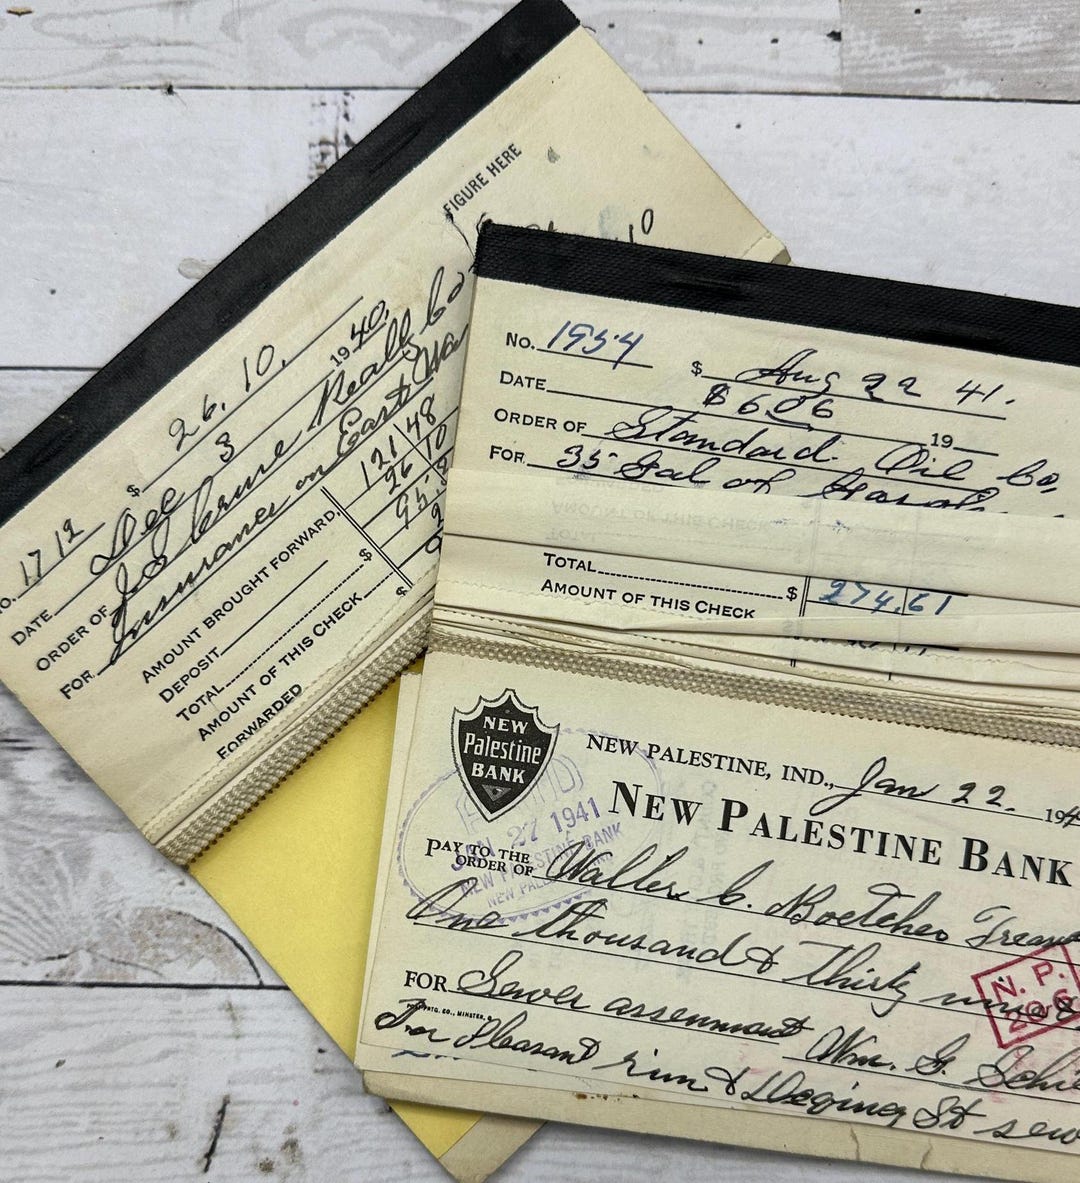 FIGURE HERE
10
No. 1712
$ 26.10.
DATE Dec 3 1940.
ORDER OF
FOR Insurance on East
AMOUNT BROUGHT FORWARD 121 48
DEPOSIT 26 10
TOTAL $ 95
AMOUNT OF THIS CHECK $
FORWARDED
No. 1954 $ Aug 22 41.
DATE $6.06
ORDER OF Standard Oil Co, 19
FOR 35 Gal of
AMOUNT OF THIS CHECK
TOTAL
TOTAL $
AMOUNT OF THIS CHECK 274.61
NEW
Palestine
BANK
NEW PALESTINE, IND., Jan 22. 194
NEW PALESTINE BANK
PAID
JAN 27 1941
NEW PALESTINE BANK
NEW PALESTINE, IND.
PAY TO THE
ORDER OF Walter C. Boetcher Treasu
One thousand & Thirty nine &
N. P.
20-6
FOR Sewer assessment
Wm. G. Schi
For Pleasant run & St sew